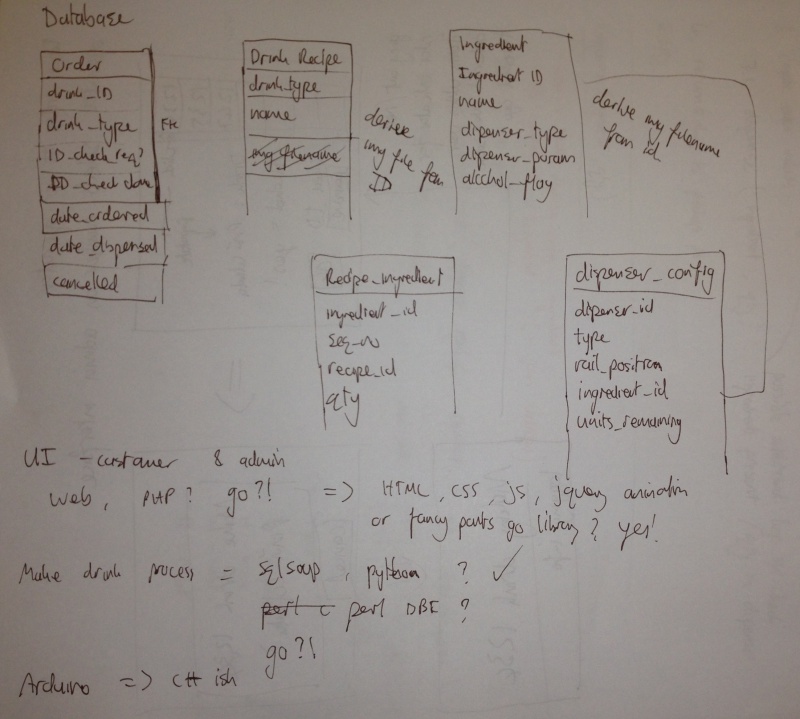 Database
Order
drink_ID
drink_type FK
ID_check req?
ID_check done
date_ordered
date_dispensed
cancelled
Drink Recipe
drink_type
name
img filename
derive
img file from
ID
Ingredient
Ingredient ID
name
dispenser_type
dispenser_param
alcohol_flag
derive img filename
from id
Recipe_ingredient
ingredient_id
seq_no
recipe_id
qty
dispenser_config
dispenser_id
type
rail_position
ingredient_id
units_remaining
UI - customer & admin
web, PHP? go?! => HTML, CSS, js, jquery animation
or fancy pants go library? yes!
Make drink process = sqlsoup, python ? ✓
perl DBI ?
go?!
Arduino => C++ ish